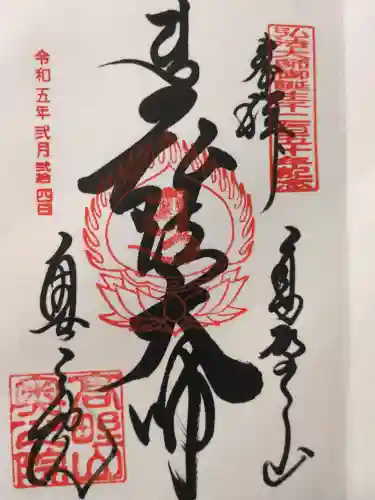 弘法大師御誕生千二百五十年記念
奉拝
高野山
弘法大師
令和五年弐月弐拾四日
奥之院
高野山
奥之院